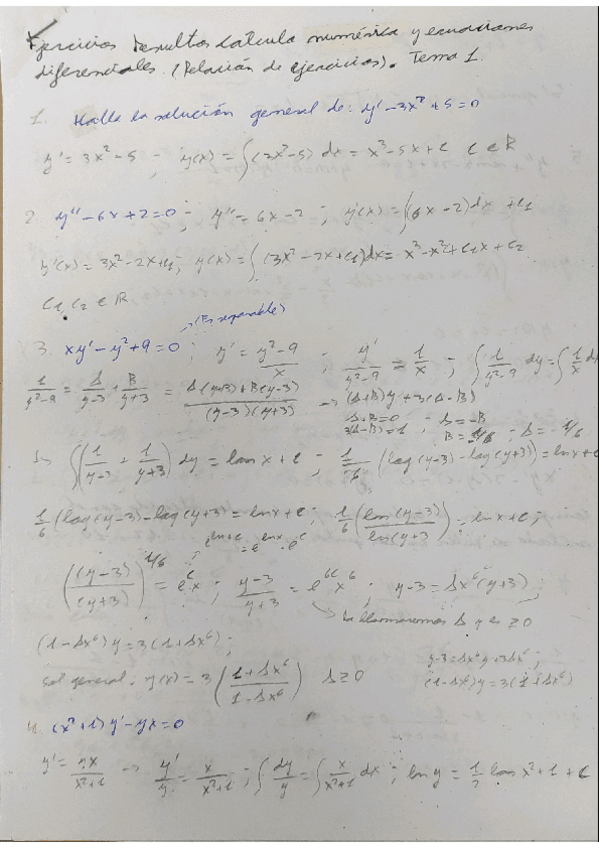 Ejercicios Resueltos Cálculo numérico y ecuaciones
diferenciales. (Relación de ejercicios). Tema 1.
1. Halla la solución general de: y' - 3x² + 5 = 0
y' = 3x² - 5 ; y(x) = ∫(3x² - 5) dx = x³ - 5x + C C ∈ R
2. y'' - 6x + 2 = 0 ; y'' = 6x - 2 ; y'(x) = ∫(6x - 2) dx + C₁
y'(x) = 3x² - 2x + C₁ ; y(x) = ∫(3x² - 2x + C₁) dx = x³ - x² + C₁x + C₂
C₁, C₂ ∈ R
→ (Es separable)
3. xy' - y² + 9 = 0 ; y' = (y² - 9)/x ; y'/(y² - 9) = 1/x ; ∫ 1/(y² - 9) dy = ∫ 1/x dx
1/(y² - 9) = A/(y - 3) + B/(y + 3) = (A(y+3) + B(y-3))/((y-3)(y+3)) → (A+B)y + 3(A-B)
A+B = 0 ; A = -B
3(A-B) = 1 ;
∫(1/(y-3) + 1/(y+3)) dy = ln x + C ; 1/6 (log(y-3) - log(y+3)) = ln x + C
1/6 (log(y-3) - log(y+3)) = ln x + C ; 1/6 (ln(y-3)/ln(y+3)) = ln x + C ;
((y-3)/(y+3))^1/6 = e^C x ; (y-3)/(y+3) = e^6C x^6 ; y-3 = Ax^6(y+3) ;
→ la llamaremos A y es ≥ 0
(1 - Ax^6) y = 3(1 + Ax^6) ;
y-3 = Ax^6 y + 3Ax^6 ;
(1 - Ax^6) y = 3(1 + Ax^6)
Sol general: y(x) = 3 ((1 + Ax^6)/(1 - Ax^6)) A ≥ 0
4. (x² + 1) y' - yx = 0
y' = yx/(x² + 1) → y'/y = x/(x² + 1) ; ∫ dy/y = ∫ x/(x² + 1) dx ; ln y = 1/2 ln x² + 1 + C